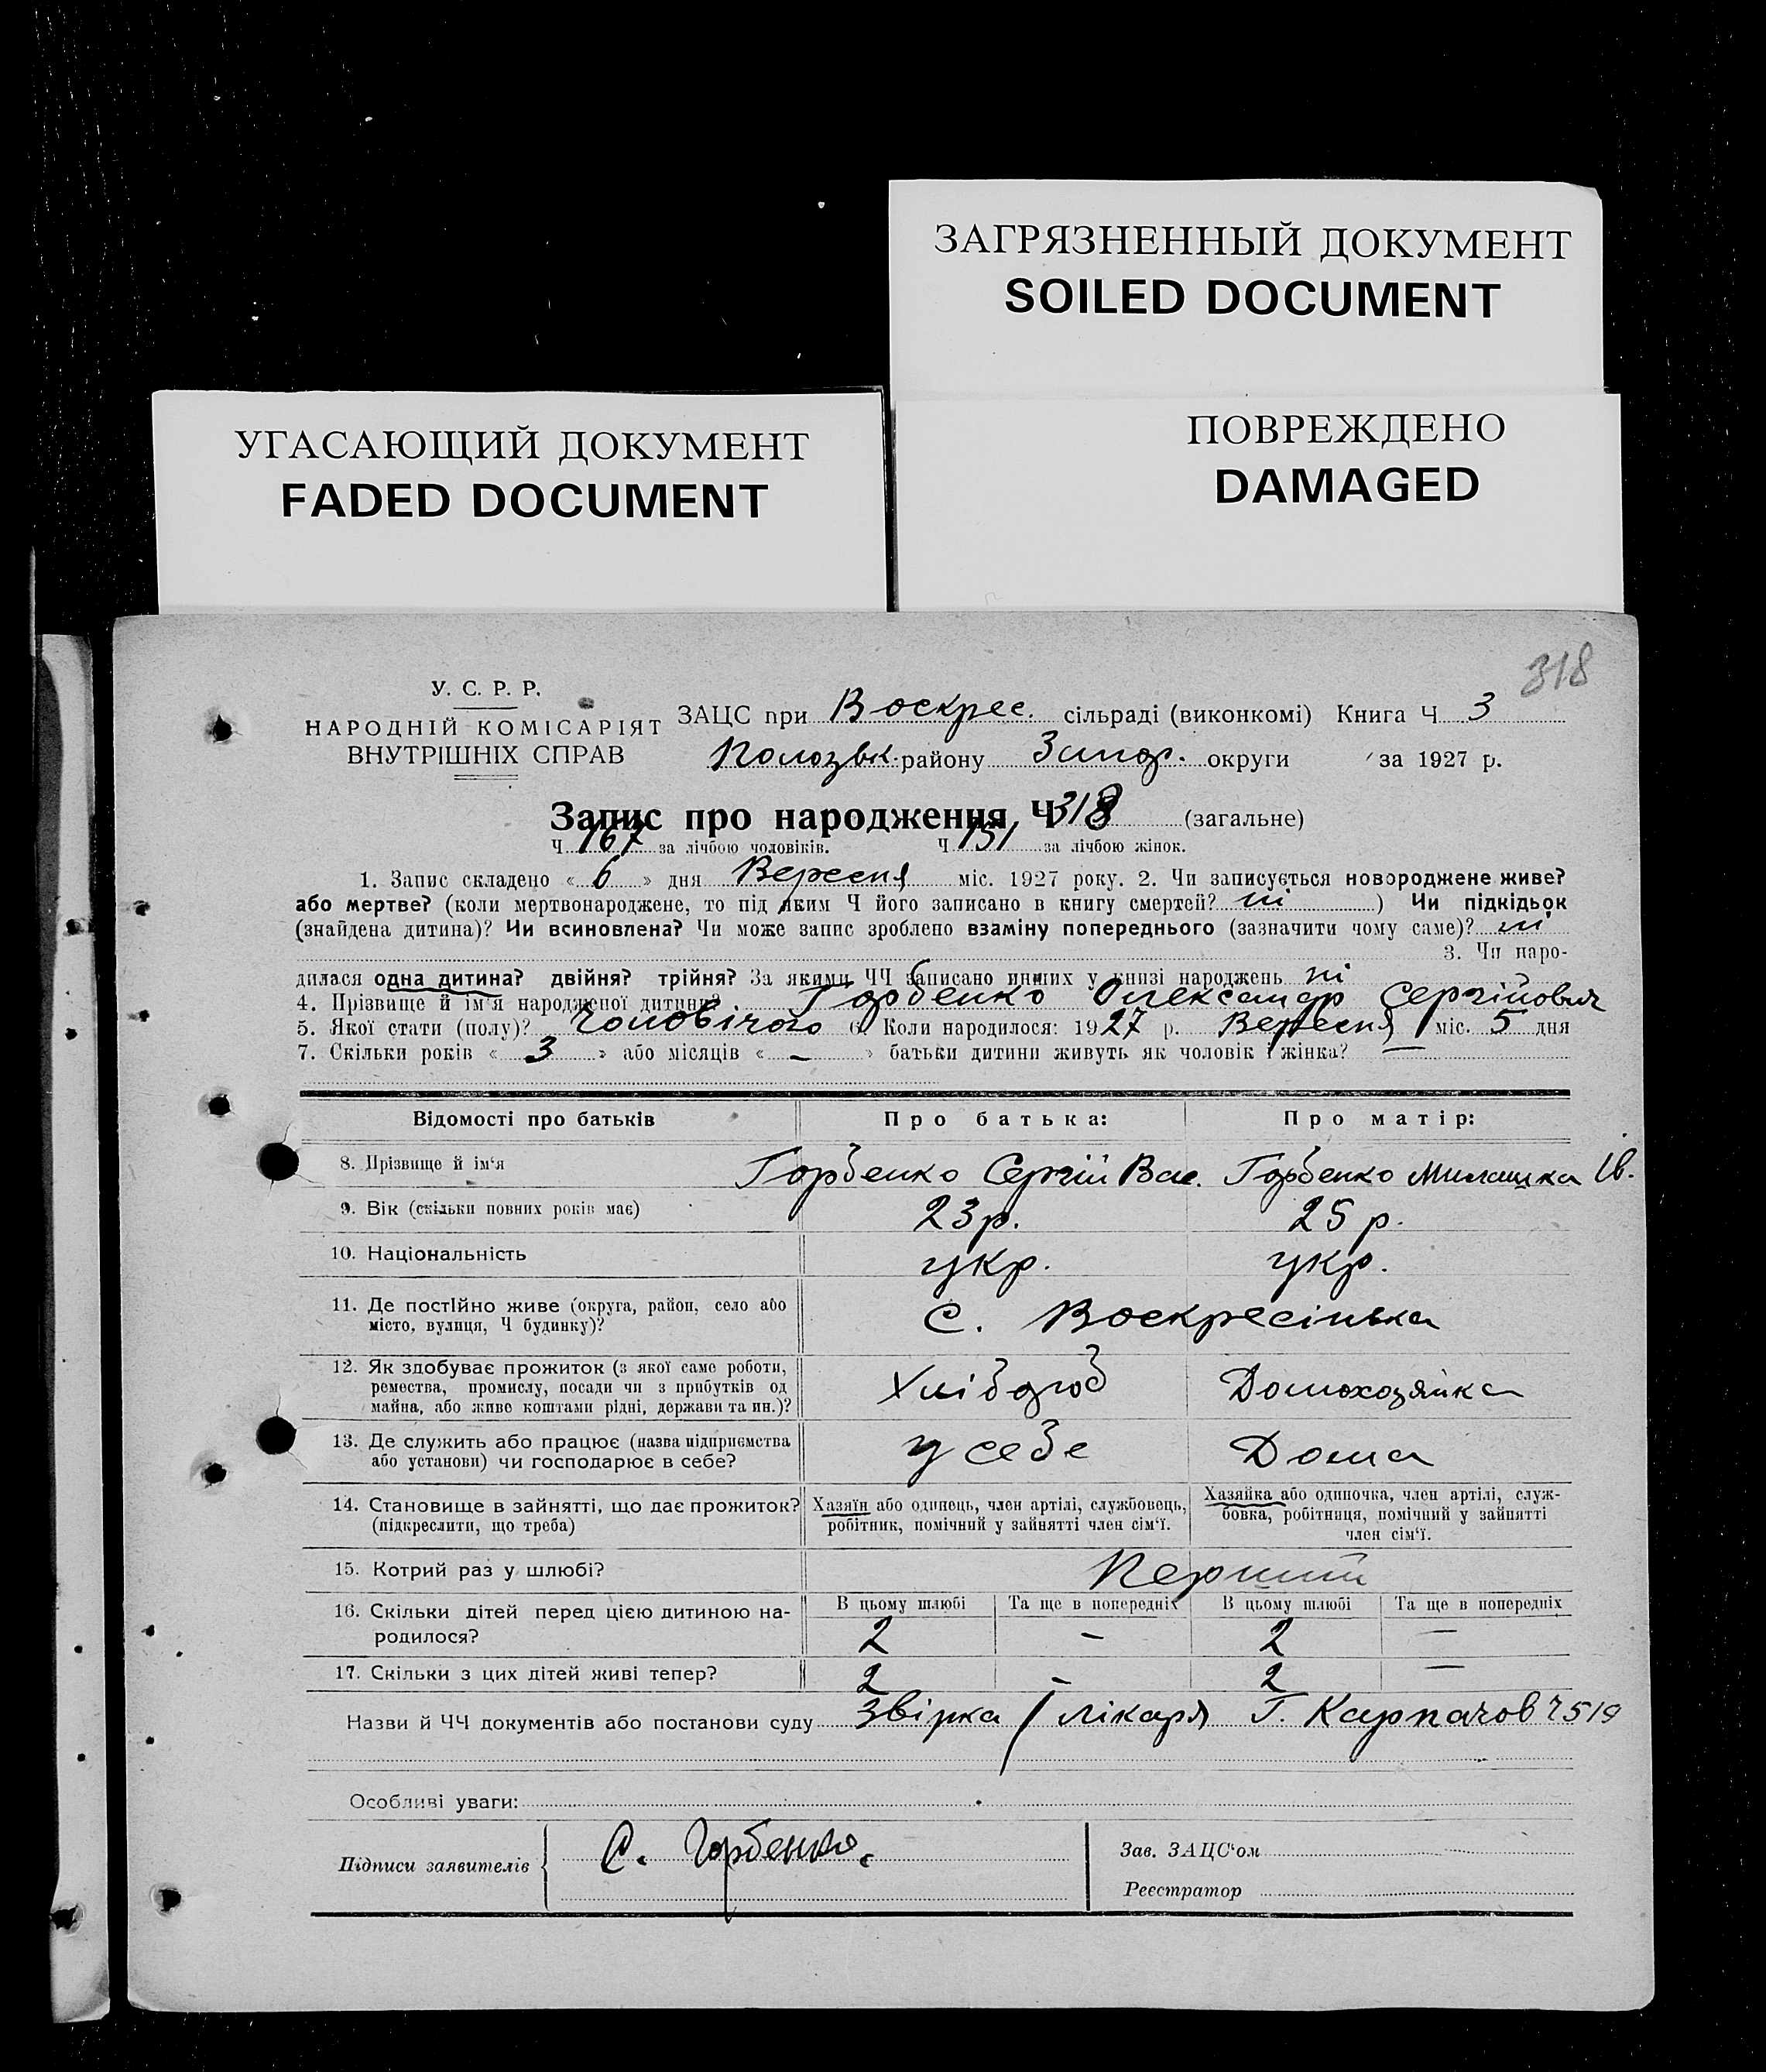 ЗАГРЯЗНЕННЫЙ ДОКУМЕНТ
SOILED DOCUMENT
УГАСАЮЩИЙ ДОКУМЕНТ
FADED DOCUMENT
ПОВРЕЖДЕНО
DAMAGED
318
У. С. Р. Р.
НАРОДНІЙ КОМІСАРІЯТ
ВНУТРІШНІХ СПРАВ
ЗАЦС при Воскрес. сільраді (виконкомі) Книга Ч 3
району Запор. округи за 1927 р.
Запис про народження Ч 318 (загальне)
Ч 167 за лічбою чоловіків. Ч 151 за лічбою жінок.
1. Запис складено « 6 » дня Вересня міс. 1927 року. 2. Чи записується новороджене живе?
або мертве? (коли мертвонароджене, то під яким Ч його записано в книгу смертей? ні ) Чи підкідьок
(знайдена дитина)? Чи всиновлена? Чи може запис зроблено взаміну попереднього (зазначити чому саме)? ні
3. Чи наро-
дилася одна дитина? двійня? трійня? За якими ЧЧ записано инших у книзі народжень ні
4. Прізвище й ім'я народженої дитини? Горбенко Олександр Сергійович
5. Якої стати (полу)? чоловічого 6. Коли народилося: 1927 р. Вересня міс. 5 дня
7. Скільки років « 3 » або місяців « – » батьки дитини живуть як чоловік і жінка? —
Відомості про батьків Про батька: Про матір:
8. Прізвище й ім'я Горбенко Сергій Вас. Горбенко Милашка Ів.
9. Вік (скільки повних років має) 23 р. 25 р.
10. Національність укр. укр.
11. Де постійно живе (округа, район, село або
місто, вулиця, Ч будинку)? с. Воскресінька
12. Як здобуває прожиток (з якої саме роботи,
ремества, промислу, посади чи з прибутків од
майна, або живе коштами рідні, держави та ин.)? Хлібороб Домохозяйка
13. Де служить або працює (назва підприємства
або установи) чи господарює в себе? у себе Дома
14. Становище в зайнятті, що дає прожиток?
(підкреслити, що треба)
Хазяїн або одинець, член артілі, службовець,
робітник, помічний у зайнятті член сім'ї.
Хазяйка або одиночка, член артілі, служ-
бовка, робітниця, помічний у зайнятті
член сім'ї.
15. Котрий раз у шлюбі? Перший
В цьому шлюбі Та ще в попередніх В цьому шлюбі Та ще в попередніх
16. Скільки дітей перед цією дитиною на-
родилося? 2 – 2 —
17. Скільки з цих дітей живі тепер? 2 – 2 —
Назви й ЧЧ документів або постанови суду Звірка / лікаря Г. Карпачов Ч 519
Особливі уваги:
Підписи заявителів С. Горбенко.
Зав. ЗАЦС'ом
Реєстратор